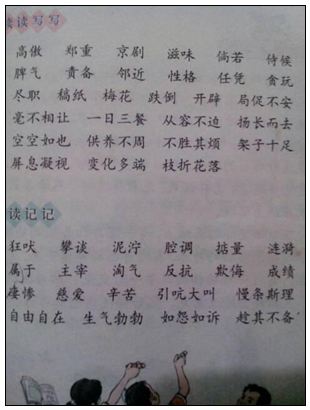 读读写写
高傲 郑重 京剧 滋味 倘若 侍候
脾气 责备 邻近 性格 任凭 贪玩
尽职 稿纸 梅花 跌倒 开辟 局促不安
毫不相让 一日三餐 从容不迫 扬长而去
空空如也 供养不周 不胜其烦 架子十足
屏息凝视 变化多端 枝折花落
读记记
狂吠 攀谈 泥泞 腔调 掂量 涟漪
属于 主宰 淘气 反抗 欺侮 成绩
凄惨 慈爱 辛苦 引吭大叫 慢条斯理
自由自在 生气勃勃 如怨如诉 趁其不备